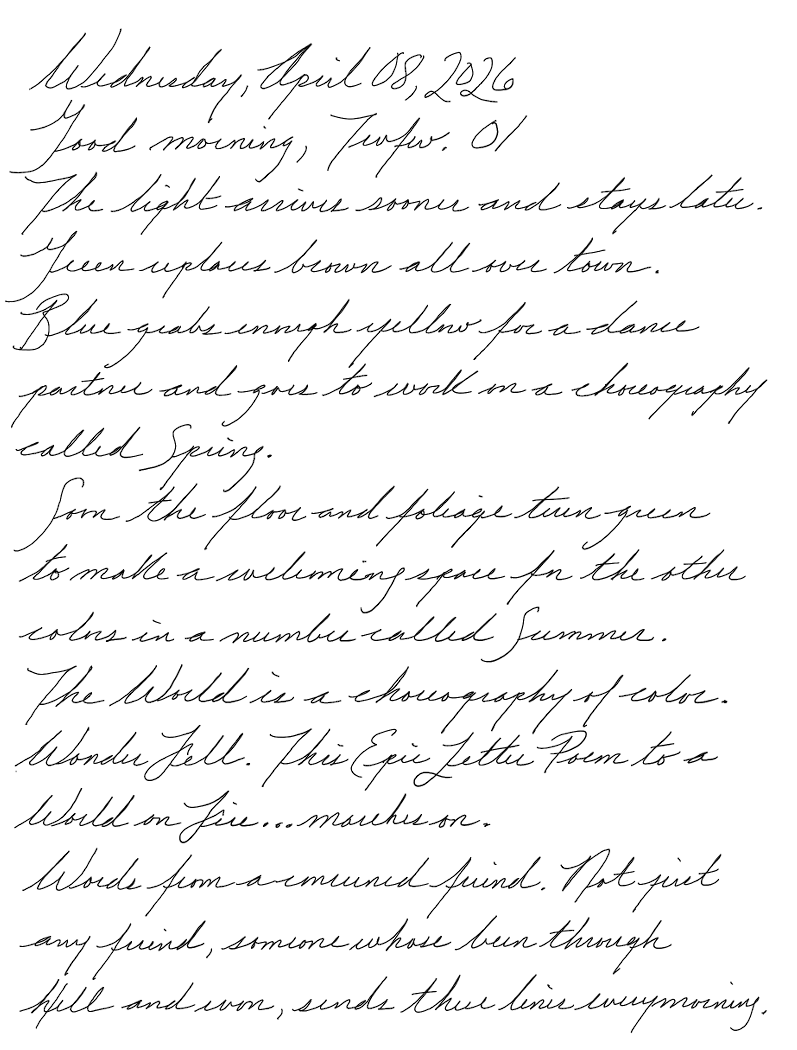 Wednesday, April 08, 2026
Good morning, Twfw. 01
The light arrives sooner and stays later.
Green replaces brown all over town.
Blue grabs enough yellow for a dance
partner and goes to work on a choreography
called Spring.
Soon the floor and foliage turn green
to make a welcoming space for the other
colors in a number called Summer.
The World is a choreography of color.
Wonder Fell. This Epic Letter Poem to a
World on Fire... marches on.
Words from a concerned friend. Not just
any friend, someone whose been through
Hell and won, sends these lines every morning.